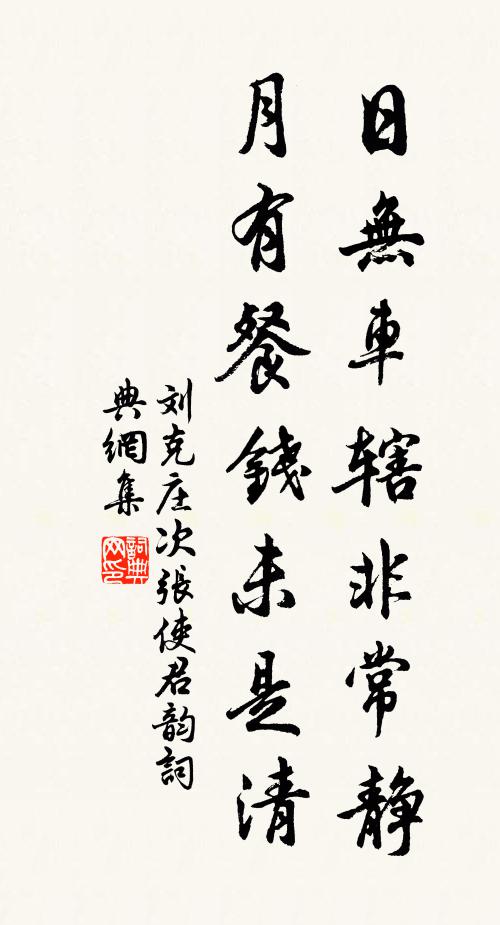 日無車辖非常静
月有餐錢未是清
刘克庄次張使君韵詞
典網集
詞典网印